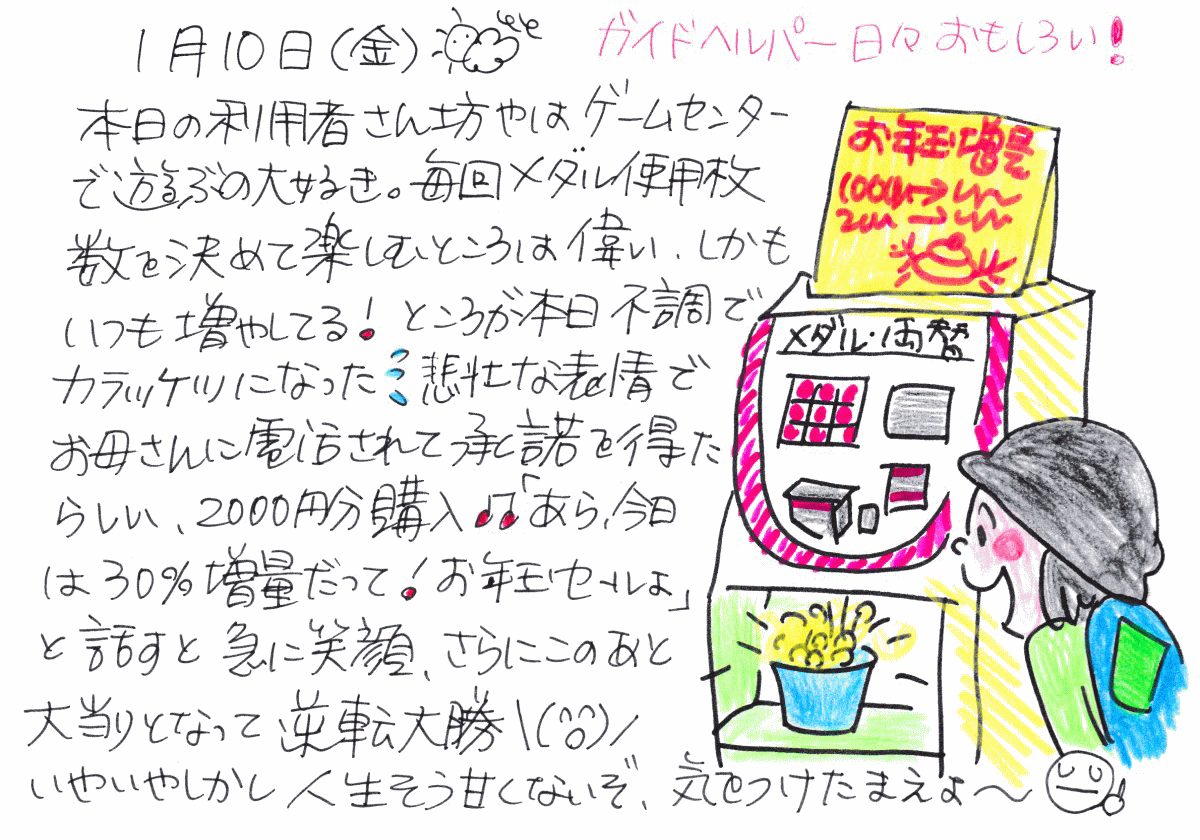 1月10日(金)
ガイドヘルパー日々おもしろい!
本日の利用者さん坊やはゲームセンター
で遊ぶの大好き。毎回メダル使用枚
数を決めて楽しむところは偉い、しかも
いつも増やしてる!ところが本日不調で
カラッケツになった 悲壮な表情で
お母さんに電話されて承諾を得た
らしい、2000円分購入♪♫「あら、今日
は30%増量だって!お年玉セールよ」
と話すと急に笑顔、さらにこのあと
大当りとなって逆転大勝\(^o^)/
いやいやしかし人生そう甘くないぞ、気をつけたまえよ〜
お年玉増量
メダル・両替